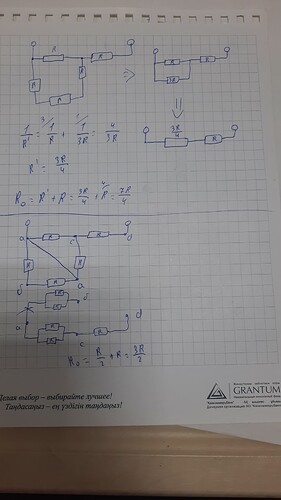 R R
R R
R
R R
3R
⇒
⇓
1/R' = 1/R + 1/3R = 4/3R
3R/4 R
R' = 3R/4
R₀ = R' + R = 3R/4 + R = 7R/4
a R c R d
R R
б R a
R R б
a R R c R d
R₀ = R/2 + R = 3R/2
Делая выбор – выбирайте лучшее!
Таңдасаңыз – ең үздігін таңдаңыз!
GRANTUM